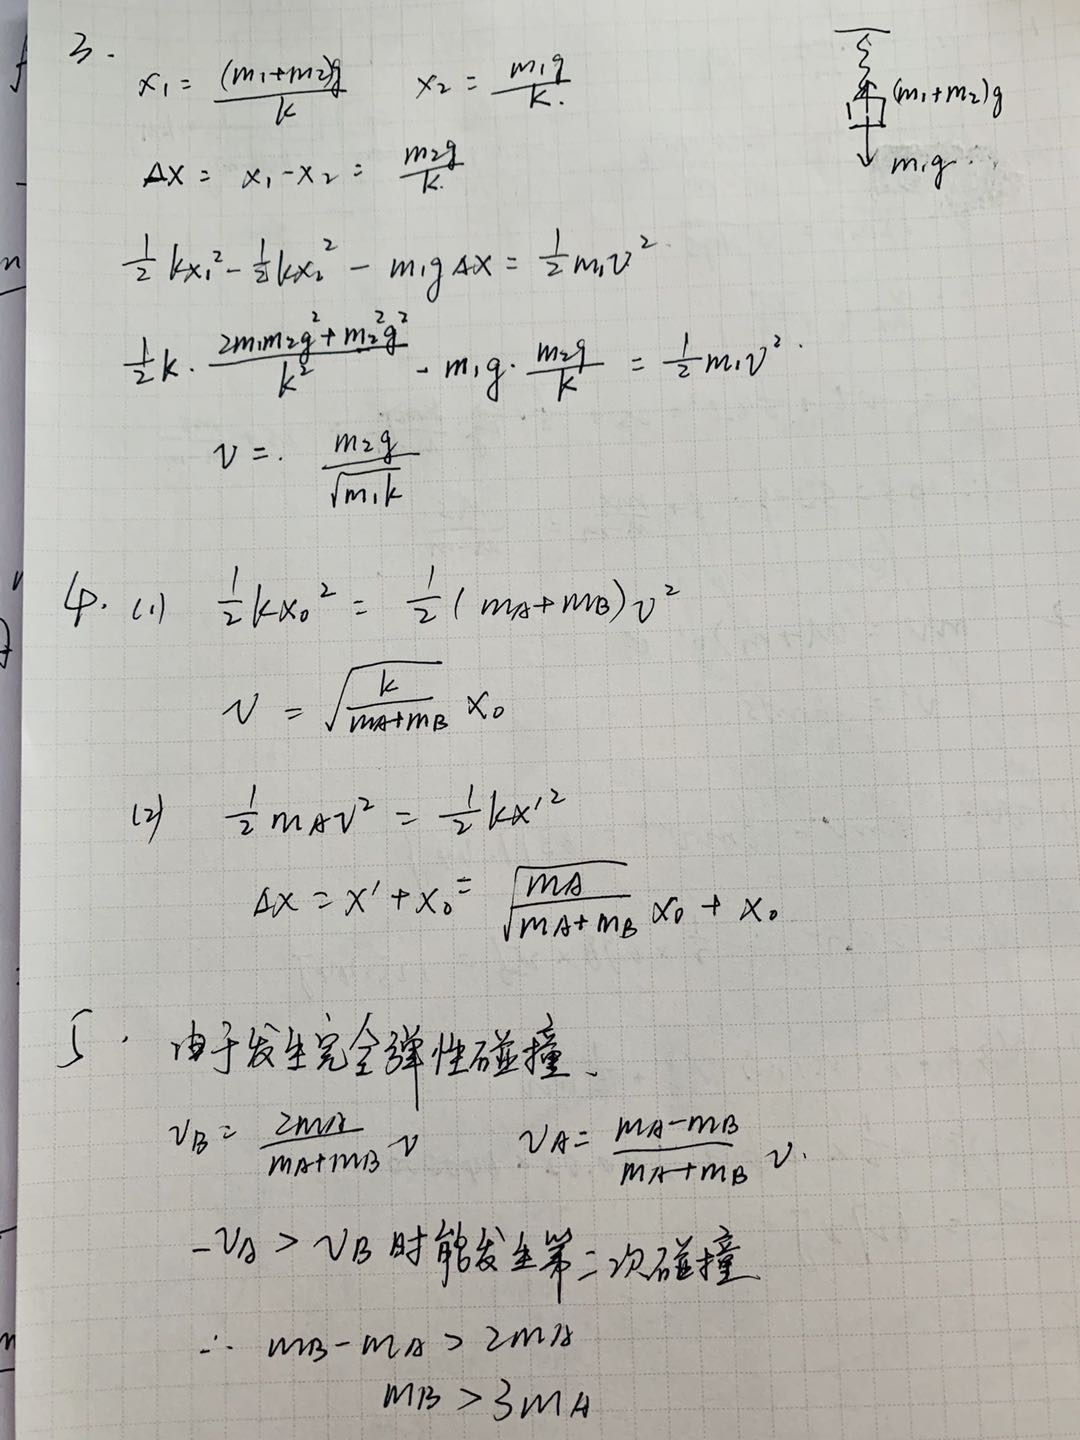 3.
x₁ = (m₁+m₂)g/k    x₂ = m₁g/k.
(m₁+m₂)g
m₁g
Δx = x₁-x₂ = m₂g/k.
½kx₁² - ½kx₂² - m₁gΔx = ½m₁v²
½k·(2m₁m₂g²+m₂²g²)/k² - m₁g·m₂g/k = ½m₁v².
v =. m₂g/√(m₁k)
4. (1) ½kx₀² = ½(mA+mB)v²
v = √(k/(mA+mB)) x₀
(2) ½mAv² = ½kx'²
Δx = x'+x₀ = √(mA/(mA+mB)) x₀ + x₀
5. 由于发生完全弹性碰撞、
vB = 2mA/(mA+mB) v    vA = (mA-mB)/(mA+mB) v.
-vA > vB 时能发生第二次碰撞
∴ mB-mA > 2mA
mB > 3mA